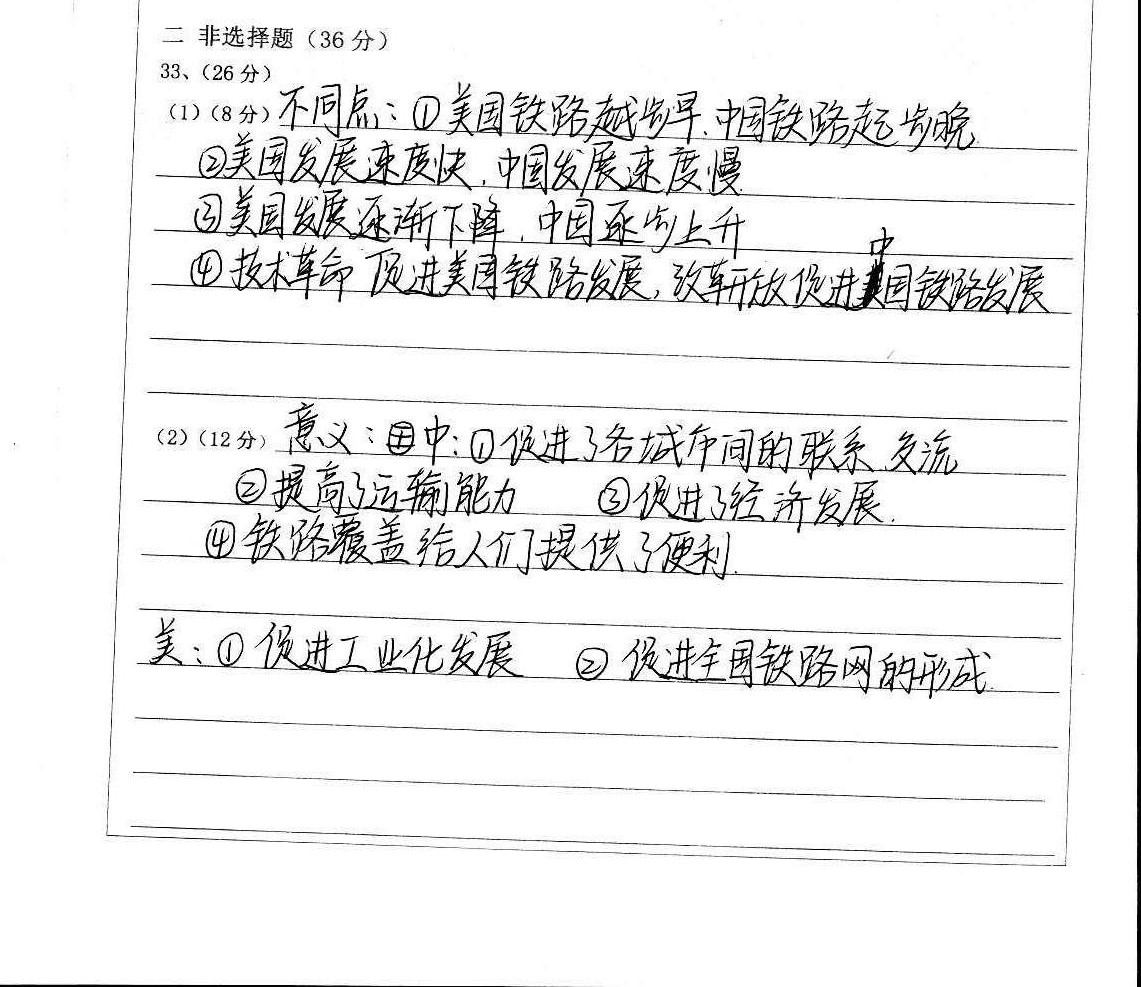 二 非选择题（36 分）
33、（26 分）
（1）（8 分）不同点：①美国铁路起步早、中国铁路起步晚
②美国发展速度快，中国发展速度慢
③美国发展逐渐下降，中国逐步上升
④技术革命 促进美国铁路发展，改革开放促进中国铁路发展
（2）（12 分）意义：中：①促进了各城市间的联系、交流
②提高了运输能力 ③促进了经济发展.
④铁路覆盖给人们提供了便利.
美：①促进工业化发展 ②促进全国铁路网的形成.